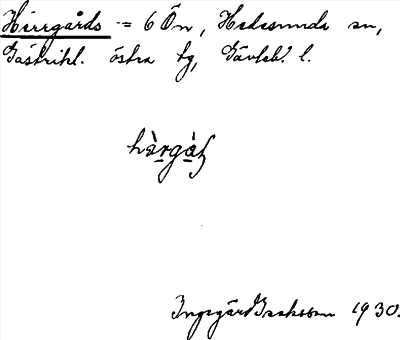 Herrgårds = 6 Ön, Hedesunda sn,
Gästrikl. östra tg, Gävleb. l.
hàrgàʂ
Ingegärd Isaksson 1930.